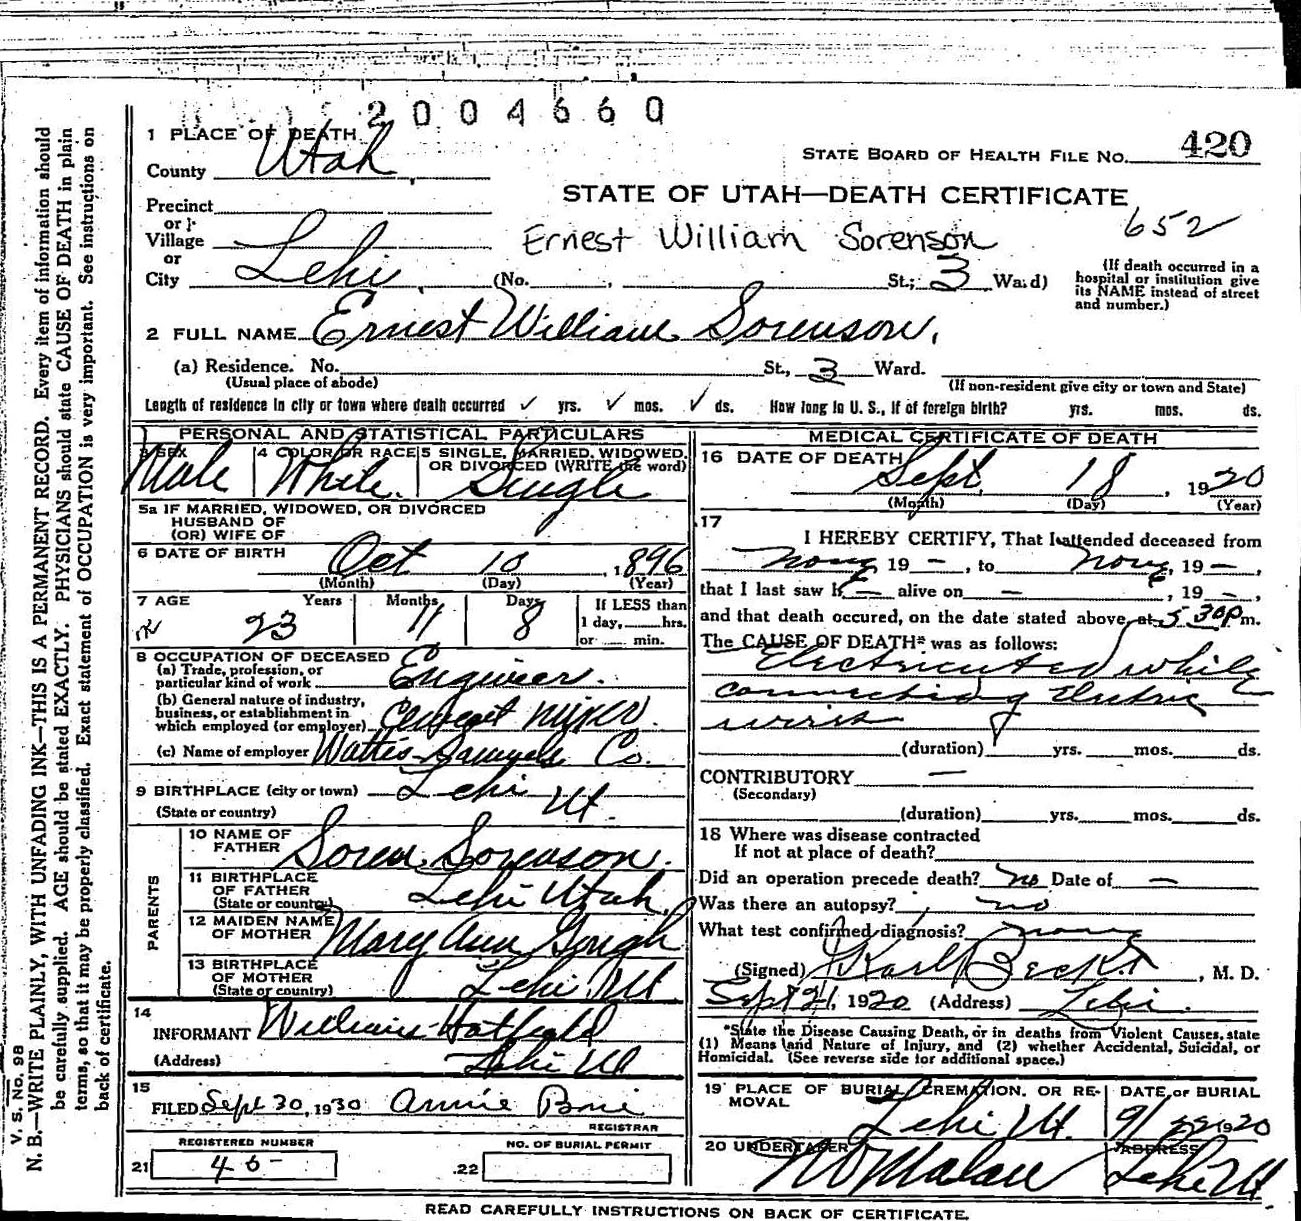 2004660
1 PLACE OF DEATH
County Utah
STATE BOARD OF HEALTH FILE No. 420
STATE OF UTAH—DEATH CERTIFICATE
Precinct
or
Village
Ernest William Sorenson 652
or
City Lehi (No. , St.; 3 Ward)
(If death occurred in a hospital or institution give its NAME instead of street and number.)
2 FULL NAME Ernest William Sorenson.
(a) Residence. No. St., 3 Ward.
(Usual place of abode) (If non-resident give city or town and State)
Length of residence in city or town where death occurred ✓ yrs. ✓ mos. ✓ ds. How long in U. S., if of foreign birth? yrs. mos. ds.
PERSONAL AND STATISTICAL PARTICULARS
3 SEX 4 COLOR OR RACE 5 SINGLE, MARRIED, WIDOWED,
OR DIVORCED (WRITE the word)
Male White. Single
5a IF MARRIED, WIDOWED, OR DIVORCED
HUSBAND OF
(OR) WIFE OF
6 DATE OF BIRTH Oct 10, 1896
(Month) (Day) (Year)
7 AGE Years Months Days If LESS than
23 11 8 1 day, hrs.
or min.
8 OCCUPATION OF DECEASED
(a) Trade, profession, or
particular kind of work Engineer.
(b) General nature of industry,
business, or establishment in
which employed (or employer) Cement mixer
(c) Name of employer Co.
9 BIRTHPLACE (city or town) Lehi
(State or country) Ut.
PARENTS
10 NAME OF
FATHER Soren Sorenson.
11 BIRTHPLACE
OF FATHER
(State or country) Lehi Utah.
12 MAIDEN NAME
OF MOTHER Mary Ann Gough
13 BIRTHPLACE
OF MOTHER
(State or country) Lehi Ut
14
INFORMANT William Hatfield
(Address) Lehi Ut
15
FILED Sept 30, 1930 Annie
REGISTRAR
REGISTERED NUMBER NO. OF BURIAL PERMIT
21 22
MEDICAL CERTIFICATE OF DEATH
16 DATE OF DEATH Sept. 18, 1920
(Month) (Day) (Year)
17
I HEREBY CERTIFY, That I attended deceased from
none 19 –, to none, 19 –,
that I last saw h – alive on –, 19 –,
and that death occured, on the date stated above, at 5 30 p m.
The CAUSE OF DEATH* was as follows:
Electricuted while
connecting electric
wires
(duration) yrs. mos. ds.
CONTRIBUTORY –
(Secondary)
(duration) yrs. mos. ds.
18 Where was disease contracted
If not at place of death?
Did an operation precede death? no Date of –
Was there an autopsy? no
What test confirmed diagnosis? none
(Signed) Karl Beck, M. D.
Sept 21, 1920 (Address) Lehi.
*State the Disease Causing Death, or in deaths from Violent Causes, state
(1) Means and Nature of Injury, and (2) whether Accidental, Suicidal, or
Homicidal. (See reverse side for additional space.)
19 PLACE OF BURIAL, CREMATION, OR RE- DATE OF BURIAL
MOVAL
Lehi Ut. 9/22 1920
20 UNDERTAKER ADDRESS
Lehi Ut
READ CAREFULLY INSTRUCTIONS ON BACK OF CERTIFICATE.
V. S. No. 98
N. B.—WRITE PLAINLY, WITH UNFADING INK—THIS IS A PERMANENT RECORD. Every item of information should
be carefully supplied. AGE should be stated EXACTLY. PHYSICIANS should state CAUSE OF DEATH in plain
terms, so that it may be properly classified. Exact statement of OCCUPATION is very important. See instructions on
back of certificate.